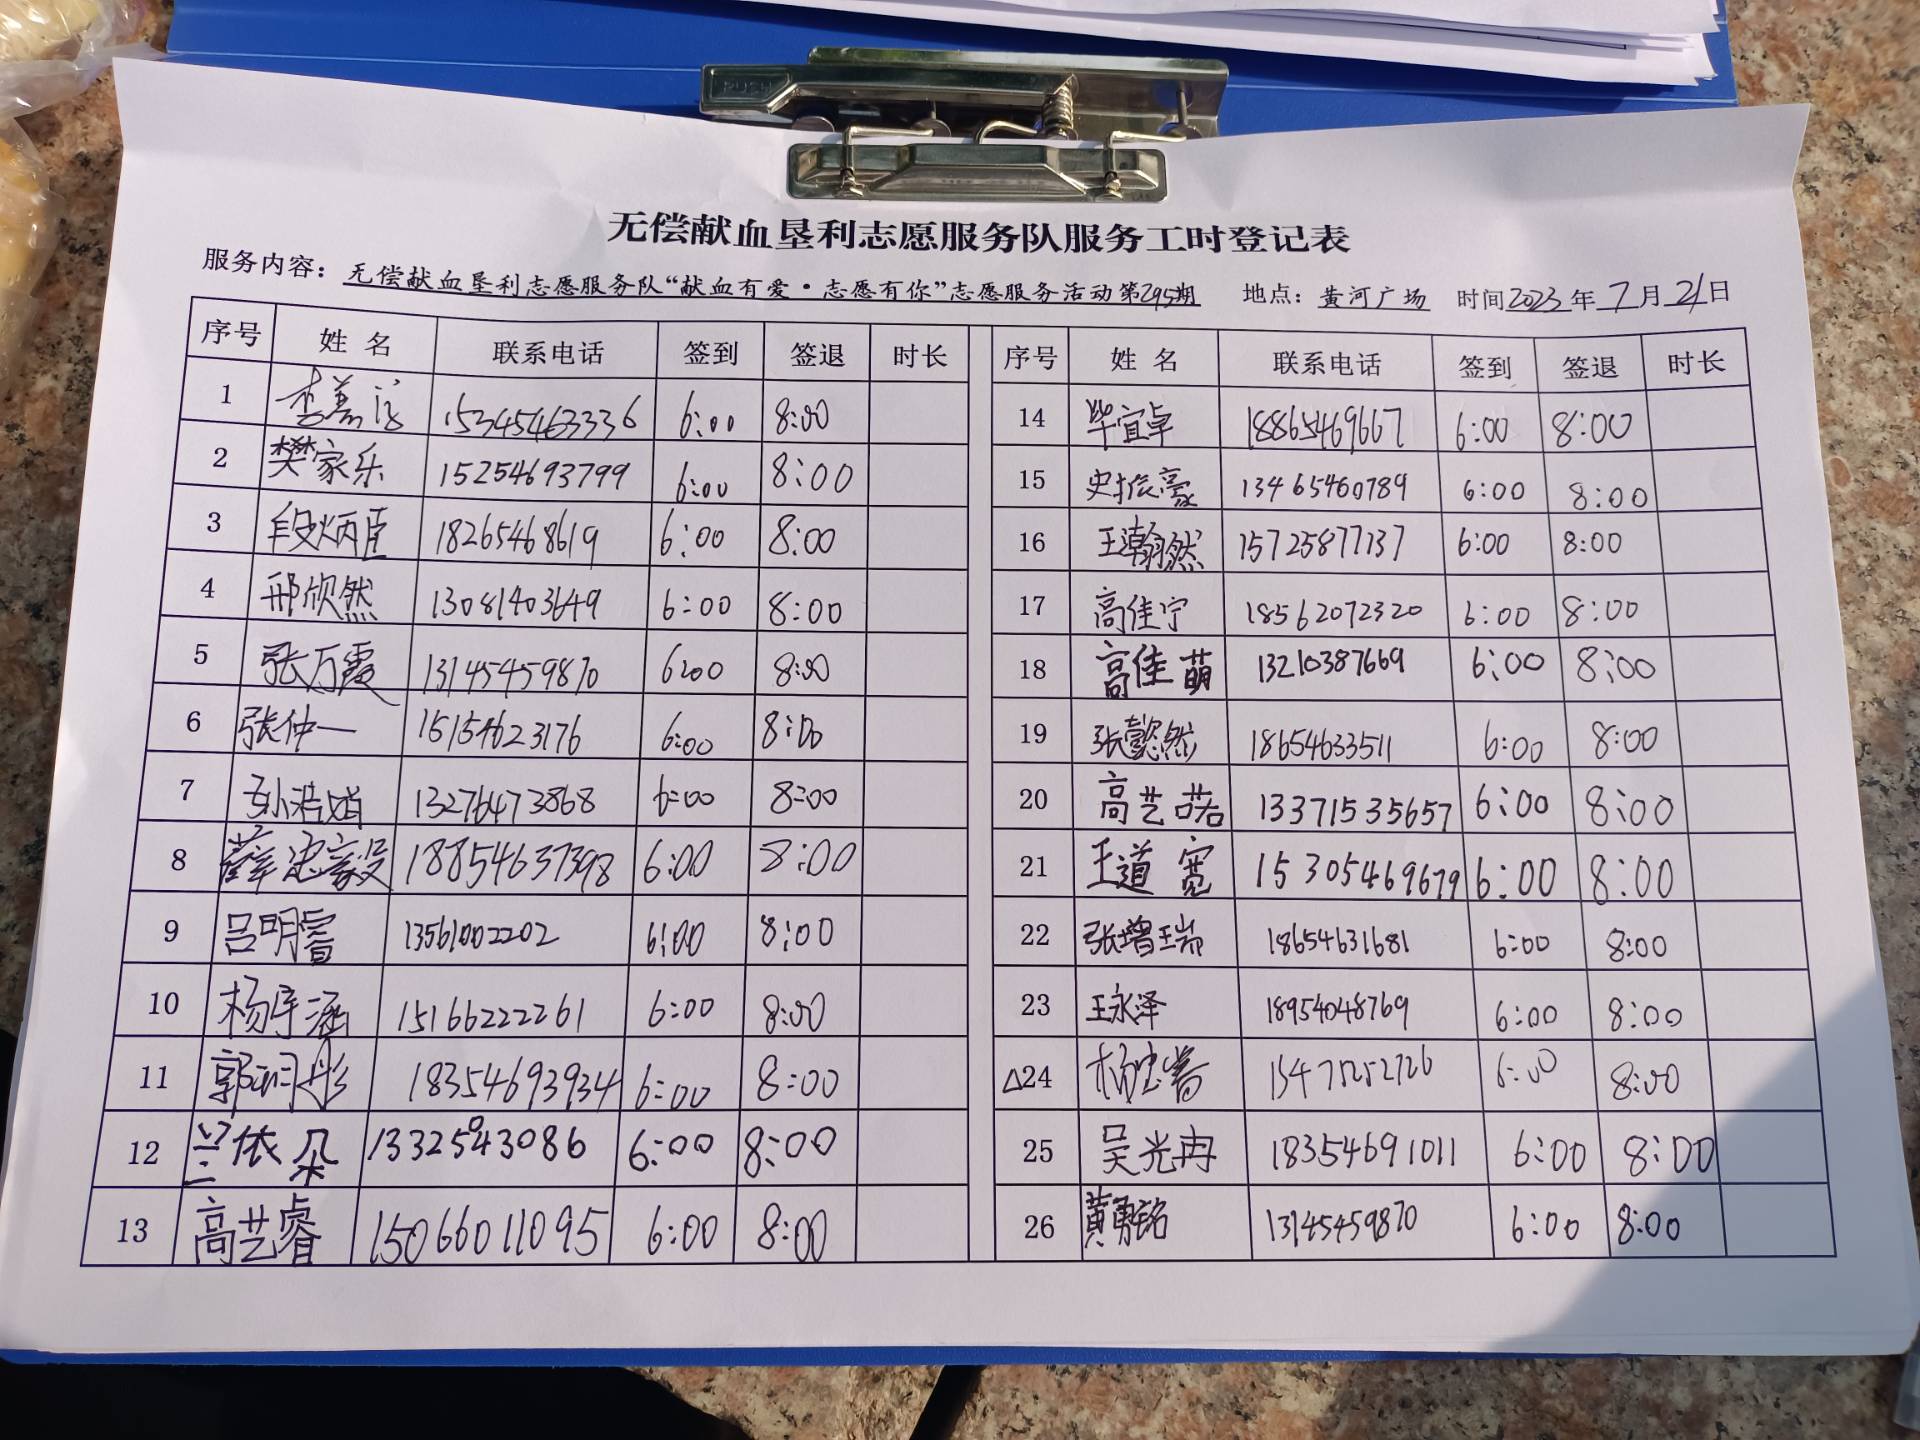 无偿献血垦利志愿服务队服务工时登记表
服务内容：无偿献血垦利志愿服务队“献血有爱·志愿有你”志愿服务活动第295期 地点：黄河广场 时间2023年7月21日
序号 姓名 联系电话 签到 签退 时长 序号 姓名 联系电话 签到 签退 时长
1 15345463336 6:00 8:00
2 樊家乐 15254693799 6:00 8:00
3 段炳臣 18265468619 6:00 8:00
4 邢欣然 13081403649 6:00 8:00
5 张万霞 13145459870 6:00 8:00
6 张仲一 15154623176 6:00 8:00
7 孙浩 13276473868 6:00 8:00
8 薛忠豪 18854637398 6:00 8:00
9 吕明睿 13561002202 6:00 8:00
10 杨宇涵 15166222261 6:00 8:00
11 郭玥彤 18354693934 6:00 8:00
12 兰依朵 13325043086 6:00 8:00
13 高艺睿 15066011095 6:00 8:00
14 毕宜卓 18865469667 6:00 8:00
15 史振豪 13465460789 6:00 8:00
16 王瀚然 15725877137 6:00 8:00
17 高佳宁 18562072320 6:00 8:00
18 高佳萌 13210387669 6:00 8:00
19 张懿然 18654633511 6:00 8:00
20 高艺诺 13371535657 6:00 8:00
21 王道宽 15305469679 6:00 8:00
22 张增瑞 18654631681 6:00 8:00
23 王永泽 18954048769 6:00 8:00
△24 6:00 8:00
25 吴光冉 18354691011 6:00 8:00
26 黄勇铭 13145459870 6:00 8:00